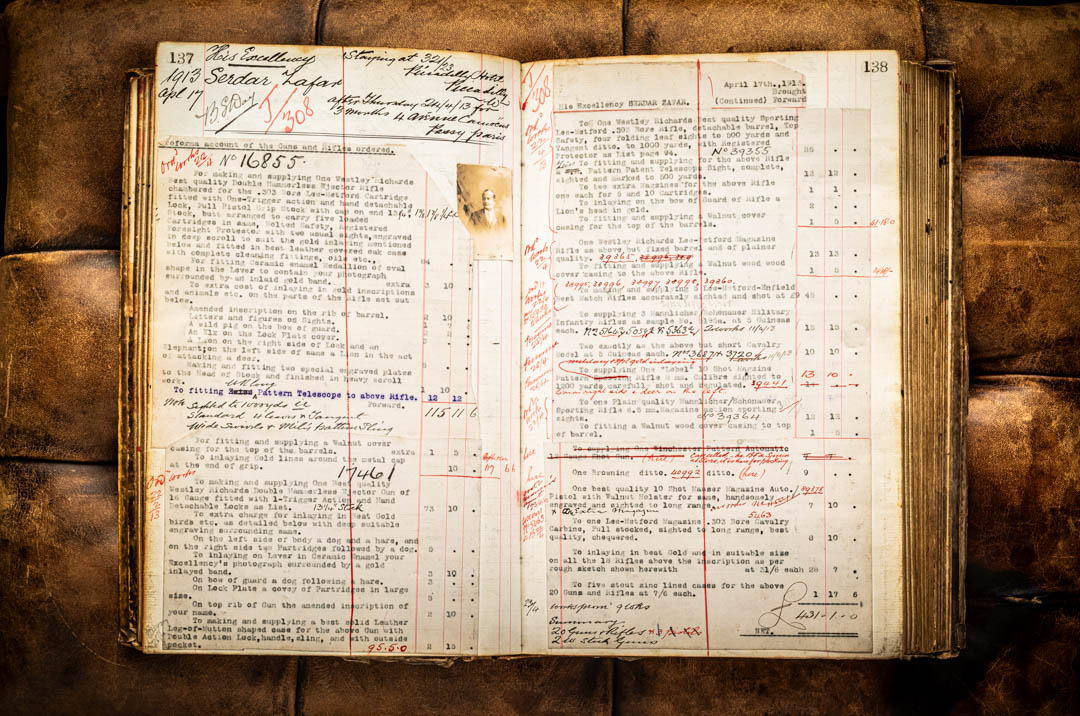 137
His Excellency
Serdar Zafar
1913
Apl 17
Staying at 32 1/2/3
Piccadilly Hotel
Piccadilly
W
J/308
after Thursday 24/4/13 for
3 months 4 Avenue Camoëns
Passy Paris
Proforma account of the Guns and Rifles ordered.
No 16855.
For making and supplying One Westley Richards
Best quality Double Hammerless Ejector Rifle
chambered for the .303 Bore Lee-Metford Cartridge
fitted with One-Trigger action and hand detachable
Lock, Full Pistol Grip Stock with cap on end
Stock, butt arranged to carry five loaded
Cartridges in same, Bolted Safety, Registered
Foresight Protector with two usual sights,engraved
in deep scroll to suit the gold inlaying mentioned
below and fitted in best leather covered oak case
with complete cleaning fittings, oils etc.. 84 . .
For fitting Ceramic enamel Medallion of oval
shape in the Lever to contain your photograph
surrounded by an inlaid gold band. extra 3 10 .
To extra cost of inlaying in gold inscriptions
and animals etc. on the parts of the Rifle set out
below.
Amended inscription on the rib of barrel. 2 10 .
Letters and figures on Sights. 1
A wild pig on the bow of guard.
An Elk on the Lock Plate cover.
A Lion on the right side of Lock and an
Elephant;on the left side of same a Lion in the act
of attacking a deer.
Making and fitting two special engraved plates
to the Head of Stock and finished in heavy scroll
work. 1 10 .
To fitting Pattern Telescope to above Rifle. 12 12 .
Forward. 115 11 6
Note Sighted to
Standard 4 leaves & Tangent
Wide Swivels & Mil'y Pattern Sling
For fitting and supplying a Walnut cover
casing for the top of the barrels. extra
To inlaying Gold lines around the metal cap
at the end of grip. 10 .
117 6 6
17461
To making and supplying One Best quality
Westley Richards Double Hammerless Ejector Gun of
16 Gauge fitted with 1-Trigger Action and Hand
Detachable Locks as List. 73 10 .
To extra charge for inlaying in Best Gold
birds etc. as detailed below with deep suitable
engraving surrounding same.
On the left side of body a dog and a hare, and
on the right side two Partridges followed by a dog. 5 . .
To inlaying on Lever in Ceramic Enamel your
Excellency's photograph surrounded by a gold
inlayed band. 3 10 .
On bow of guard a dog following a hare. 3 . .
On Lock Plate a covey of Partridges in large
size. 3 . .
On top rib of Gun the amended inscription of
your name. 2 10 .
To making and supplying a best solid Leather
Leg-of-Mutton shaped case for the above Gun with
Double Action Lock,handle,sling, and with outside
pocket. 2 15 .
95.5.0
138
J/308
April 17th., 1913.
Brought
(Continued) Forward
His Excellency SERDAR ZAFAR.
To One Westley Richards Best quality Sporting
Lee-Metford .303 Bore Rifle, detachable barrel, Top
Safety, four folding leaf sights to 500 yards and
Tangent ditto. to 1000 yards, with Registered
Protector as List page 94. No 39355
To fitting and supplying for the above Rifle
a Pattern Patent Telescope Sight, complete,
sighted and marked to 500 yards. 12 12 .
To two extra Magazines for the above Rifle
one each for 5 and 10 Cartridges. 1 1 .
To inlaying on the bow of Guard of Rifle a
Lion's head in gold. 2 . .
To fitting and supplying a Walnut cover
casing for the top of the barrels. 1 5 .
One Westley Richards Lee-Metford Magazine
Rifle as above but fixed barrel and of plainer
quality. 39365 13 13 .
To fitting and supplying a Walnut wood wood
cover casing to the above Rifle. 1 5 .
39995, 39996, 39997, 39998, 39360.
To making and supplying 5 Lee-Metford-Enfield
Best Match Rifles accurately sighted and shot at £9 45 . .
To supplying 3 Mannlicher/Schonauer Military
Infantry Rifles as sample No. at 5 Guineas
each. 15 15 .
Two exactly as the above but short Cavalry
Model at 5 Guineas each. Nos 3687 & 3720 10 10 .
To supplying One "Lebel" 10 Shot Magazine
Pattern Rifle 8 mm. Calibre sighted to 13 10 .
1200 yards carefully shot and regulated. 39441
To one Plain Quality Mannlicher/Schonauer
Sporting Rifle 6.5 mm. Magazine action sporting
sights. No 39364 12 12 .
To fitting a Walnut wood cover casing to top
of barrel. 1 5 .
To supplying One Winchester Pattern Automatic
Gauge Shot Gun,
One Browning ditto. 40992 ditto. (here) 9 . .
One best quality 10 Shot Mauser Magazine Auto.
Pistol with Walnut Holster for same, handsomely
engraved and sighted to long range. 7 10 .
5463
To one Lee-Metford Magazine .303 Bore Cavalry
Carbine, Full stocked, sighted to long range, best
quality, chequered. 8 10 .
To inlaying in best Gold and in suitable size
on all the 18 Rifles above the inscription as per
rough sketch shown herewith at 31/6 eahh 28 7 .
To five stout zinc lined cases for the above
20 Guns and Rifles at 7/6 each. 1 17 6
431-1-0
NET.
Summary
20 Guns & Rifles